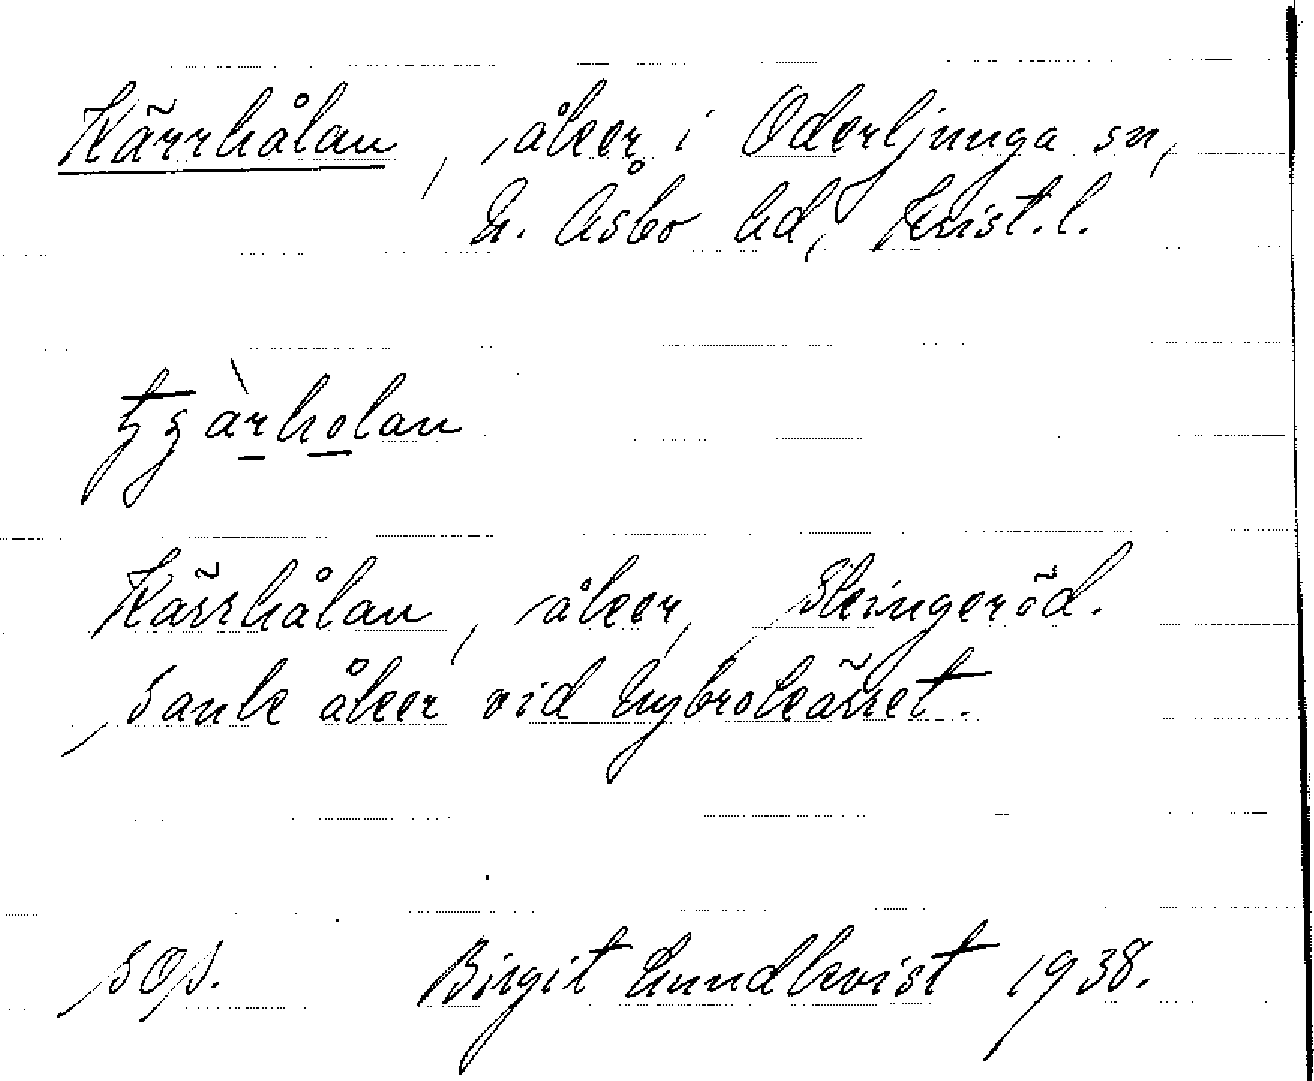 Kärrhålan, åker i Oderljunga sn,
N. Åsbo hd, Krist.l.
Kärrhålan, åker, Skingeröd.
Sank åker vid Nybrokärret.
Birgit Lundkvist 1938.